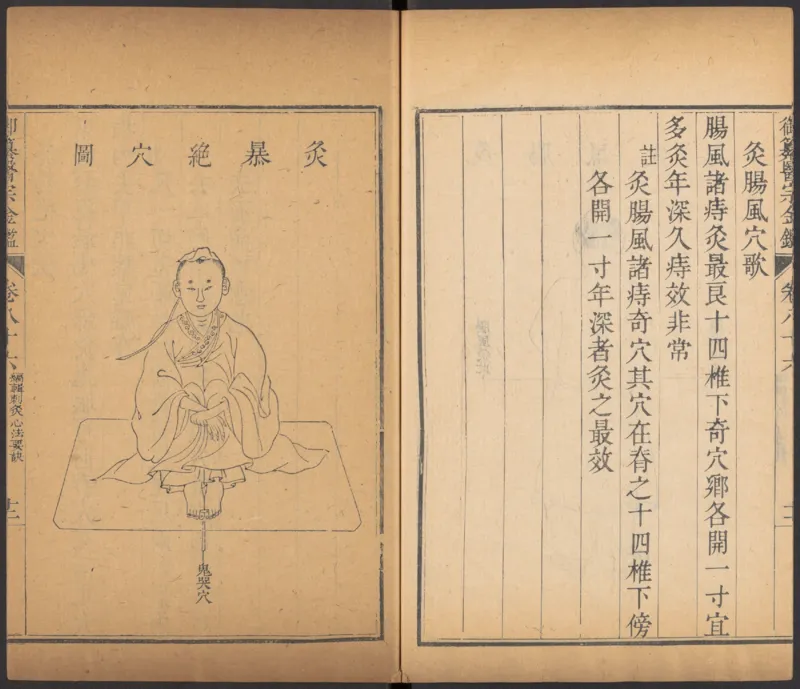 御纂醫宗金鑑
卷八十六
灸腸風穴歌
腸風諸痔灸最良十四椎下奇穴鄉各開一寸宜
多灸年深久痔效非常
註灸腸風諸痔奇穴其穴在脊之十四椎下傍
各開一寸年深者灸之最效
灸暴絕穴圖
鬼哭穴
御纂醫宗金鑑
卷八十六
編輯刺灸心法要訣